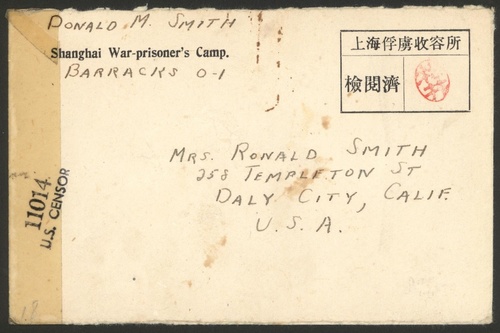 DONALD M. SMITH
Shanghai War-prisoner's Camp.
BARRACKS O-1
上海俘虜收容所
檢閱濟
MRS. RONALD SMITH
258 TEMPLETON ST
DALY CITY, CALIF.
U. S. A.
11014
U.S. CENSOR